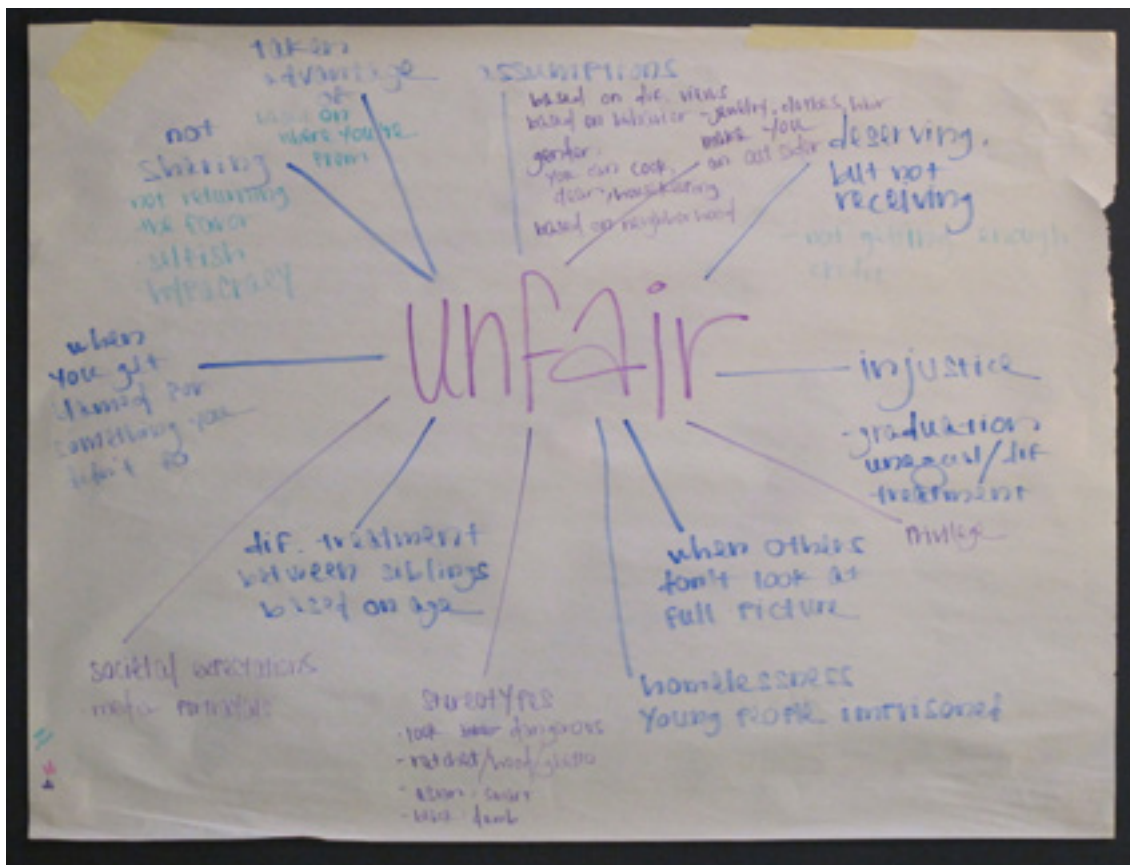 taken
advantage
of
based on
where you're
from
not
sharing
not returning
the favor
selfish
assumptions
based on dif. views
based on behavior - jewelry, clothes, hair
make you
an outsider
gender.
you can cook,
clean, housekeeping
based on neighborhood
deserving.
but not
receiving
- not getting enough
credit
unfair
when
you get
blamed for
something you
didn't do
injustice
- graduation
unequal/dif
treatment
privilege
dif. treatment
between siblings
based on age
when others
don't look at
full picture
societal expectations
media portrayals
stereotypes
- look dangerous
- ratchet/hood/ghetto
- asian-smart
homelessness
young people imprisoned